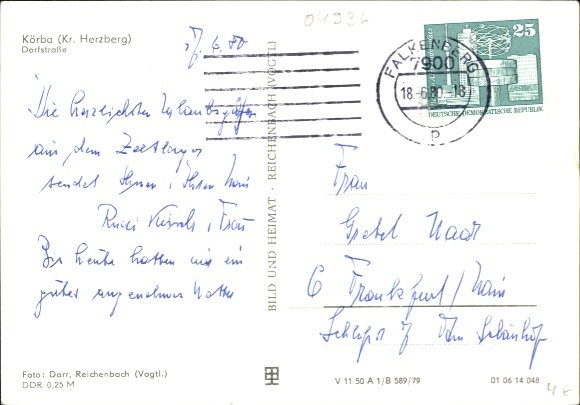 Körba (Kr. Herzberg)
Dorfstraße
17. 6. 80
Die herzlichsten Urlaubsgrüße
aus dem Zeltlager
sendet Ihnen, Ihr
Rudi, Frau
Bis heute hatten wir ein
gutes angenehmes Wetter
Foto: Darr, Reichenbach (Vogtl.)
DDR 0,25 M
BILD UND HEIMAT · REICHENBACH (VOGTL)
V 11 50 A 1/B 589/79
01 06 14 048
25
DEUTSCHE DEMOKRATISCHE REPUBLIK
FALKENBERG
7900
18.-6.80.-18
p
Frau
Gretel
6 Frankfurt/Main
4 €